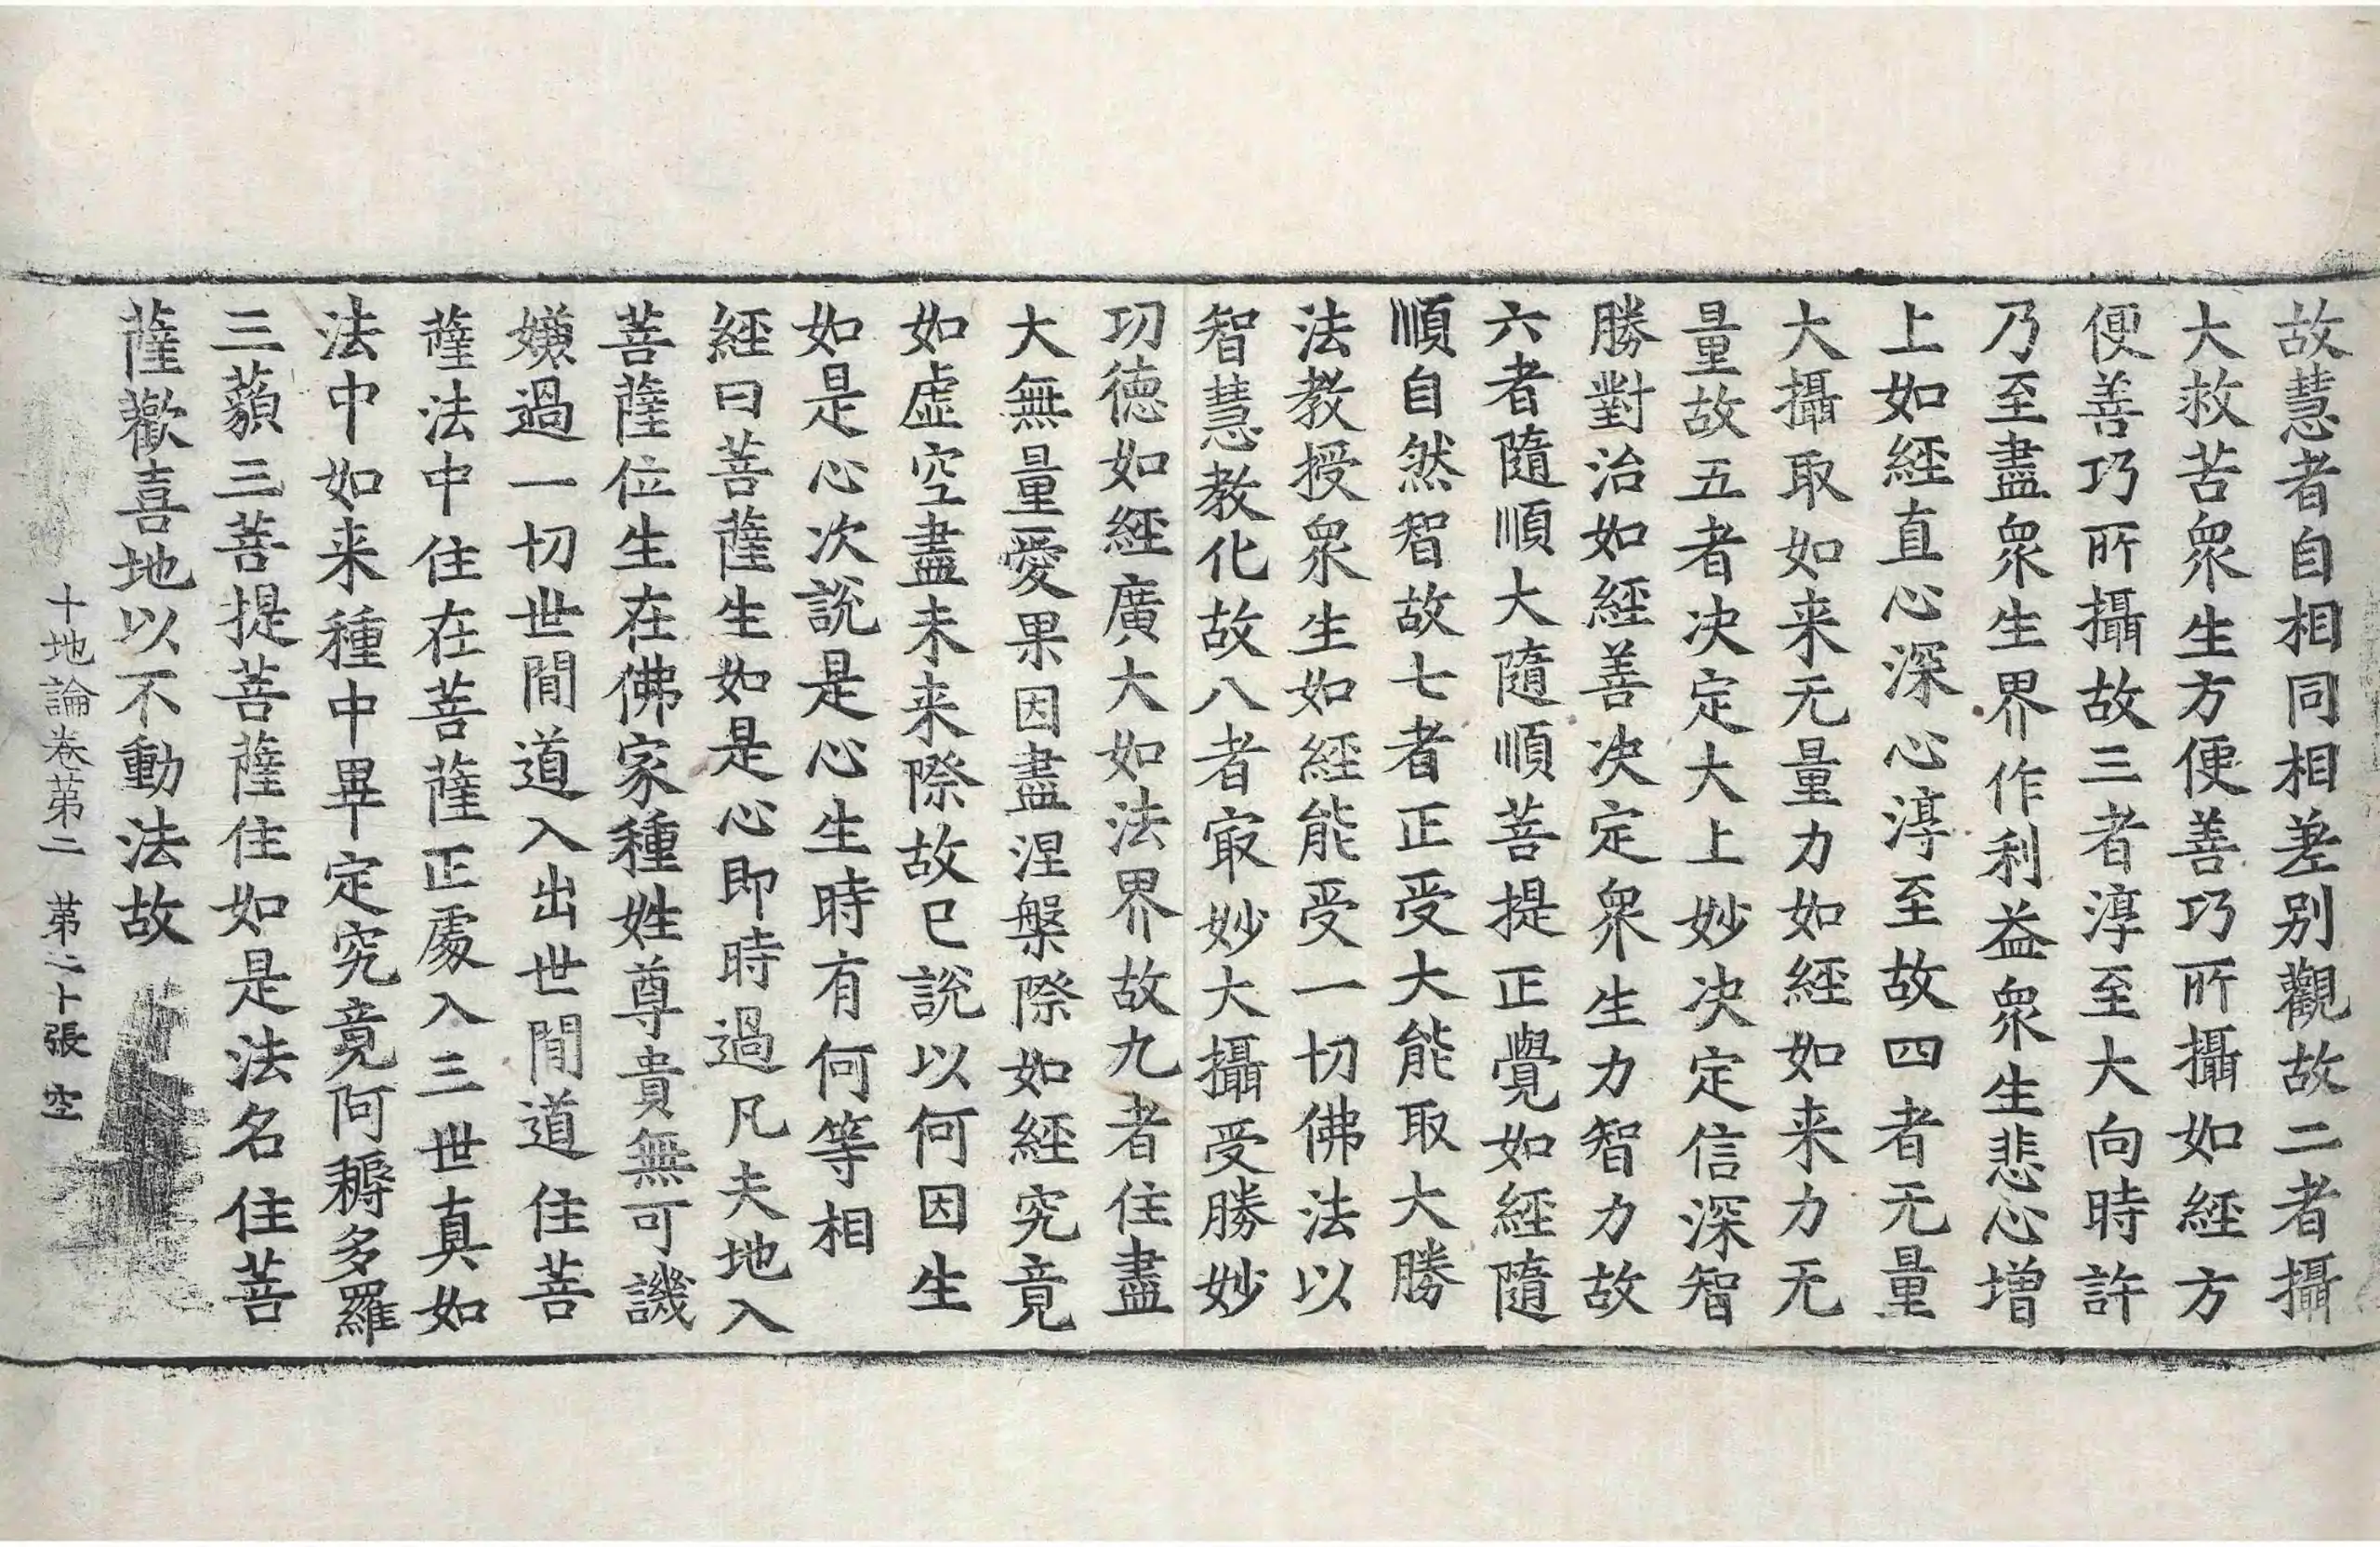 故慧者自相同相差别觀故二者攝
大救苦衆生方便善巧所攝如經方
便善巧所攝故三者淳至大向時許
乃至盡衆生界作利益衆生悲心增
上如經直心深心淳至故四者无量
大攝取如来无量力如經如来力无
量故五者决定大上妙决定信深智
勝對治如經善决定衆生力智力故
六者隨順大隨順菩提正覺如經隨
順自然智故七者正受大能取大勝
法教授衆生如經能受一切佛法以
智慧教化故八者㝡妙大攝受勝妙
功德如經廣大如法界故九者住盡
大無量愛果因盡涅槃際如經究竟
如虚空盡未来際故已說以何因生
如是心次說是心生時有何等相
經曰菩薩生如是心即時過凡夫地入
菩薩位生在佛家種姓尊貴無可譏
嫌過一切世間道入出世間道住菩
薩法中住在菩薩正處入三世真如
法中如来種中畢定究竟阿耨多羅
三藐三菩提菩薩住如是法名住菩
薩歡喜地以不動法故
十地論卷苐二 苐二十張 空